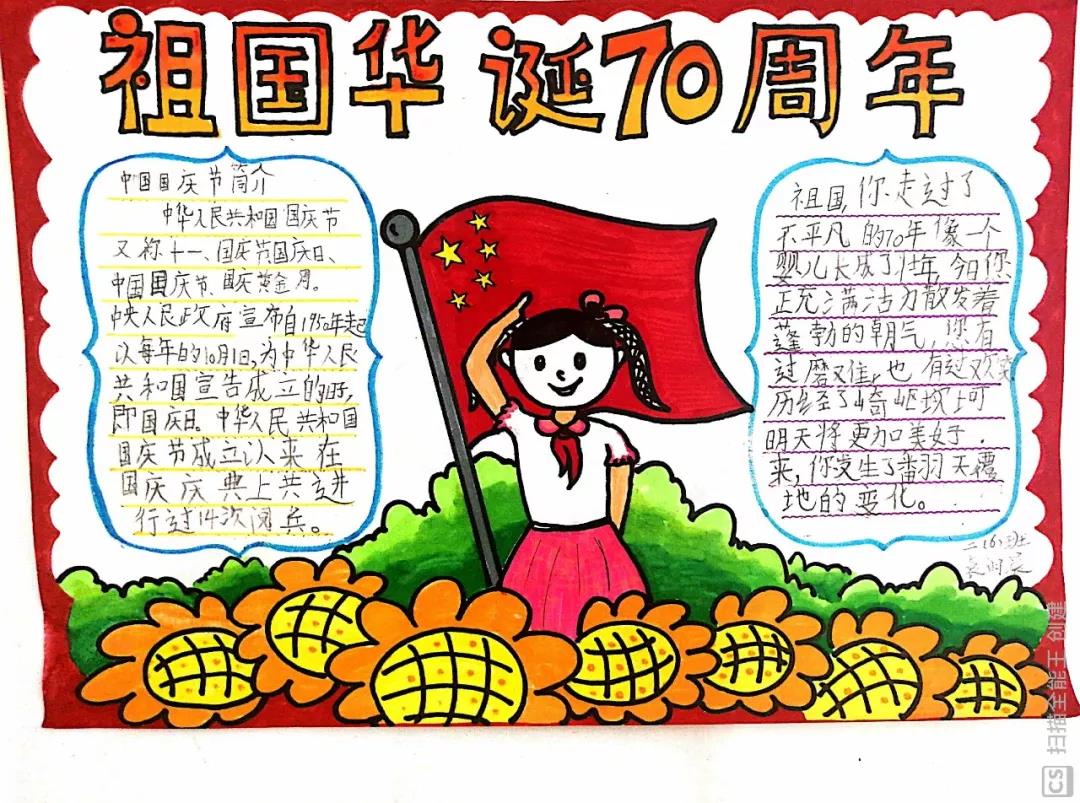 祖国华诞70周年
中国国庆节简介
中华人民共和国国庆节
又称十一、国庆节国庆日、
中国国庆节、国庆黄金周。
中央人民政府宣布自1950年起
以每年的10月1日,为中华人民
共和国宣告成立的日子,
即国庆日。中华人民共和国
国庆节成立以来在
国庆庆典上共进
行过14次阅兵。
祖国,你走过了
不平凡的70年像一个
婴儿长成了 今日你
正充满活力散发着
蓬勃的朝气,您有
过磨难,也有过欢笑
历经了崎岖坎坷
明天将更加美好.
来,你发生了翻天覆
地的变化。
二(6)班
CS 扫描全能王 创建